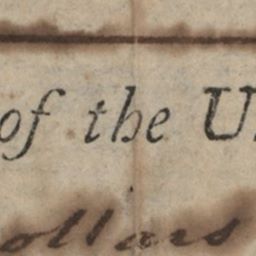 of the U
ollars